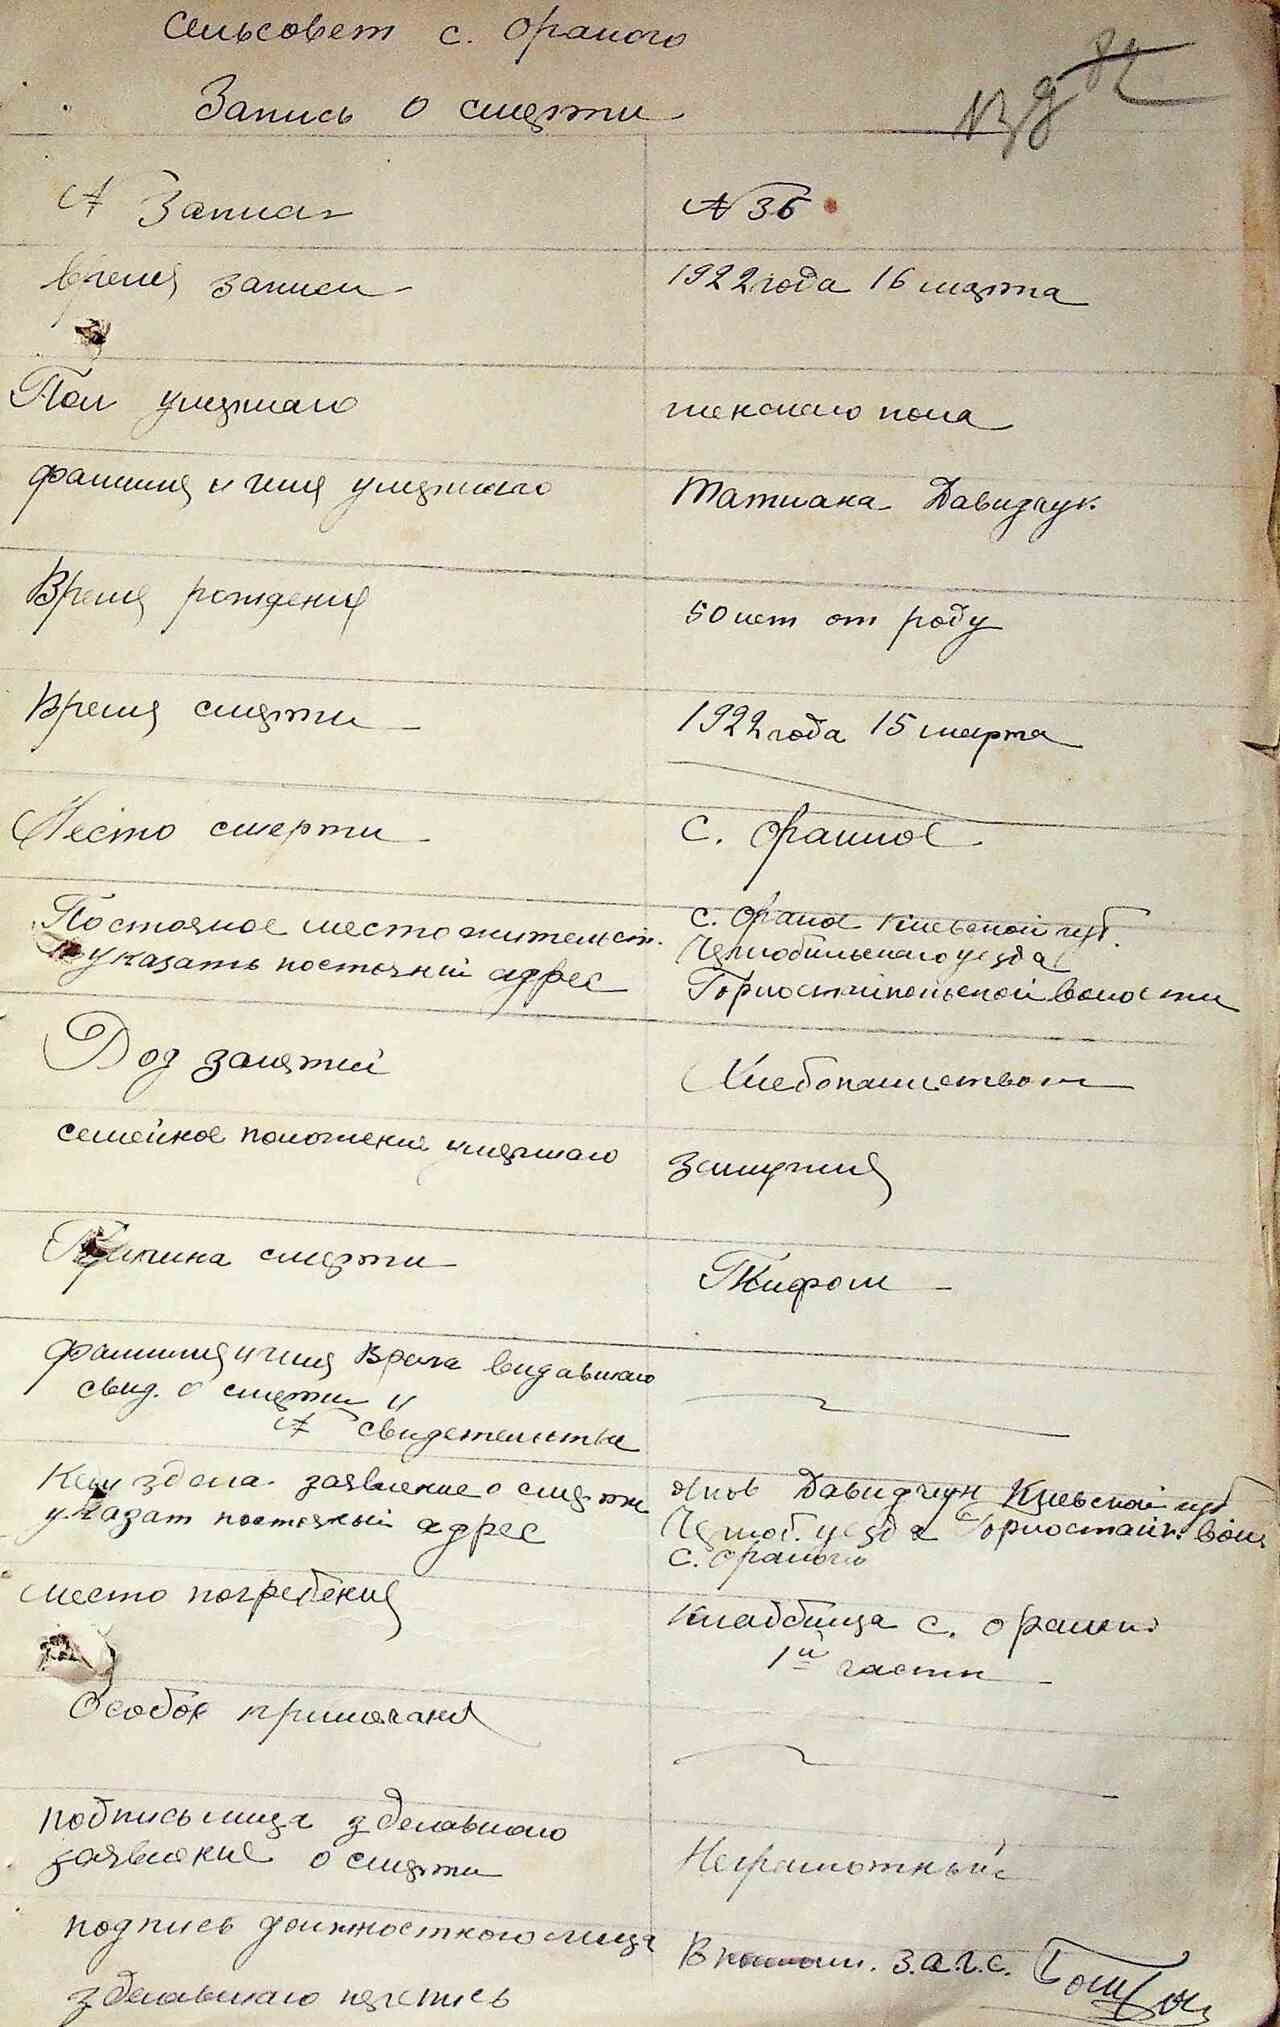 Сельсовет с. Ораного
Запись о смерти
№ Записи
№ 36
Время записи
1922 года 16 марта
Пол умершаго
женскаго пола
фамилия и имя умершаго
Татиана Давидчук
Время рождения
50 лет от роду
Время смерти
1922 года 15 марта
Место смерти
С. Ораное
Постояное место жительств.
указать постояний адрес
с. Ораное Киевской губ.
Чернобильскаго уезда
Горностайпольской волости
Род занятий
Хлебопашеством
семейное положение умершаго
замужня
Причина смерти
Тифом
фамилия и имя Врача видавшаго
свид. о смерти и
№ свидетельства
Кем здела. заявление о смерти
указат постояный адрес
Яков Давидчук Киевской губ
Черноб. уезда Горностайп. вол.
с. Ораного
место погребения
Кладбища с. Ораного
1й части
Особое примечание
подпись лица зделавшаго
заявление о смерти
Неграмотный
подпись должностного лица
зделавшаго перепись
З.А.Г.С.